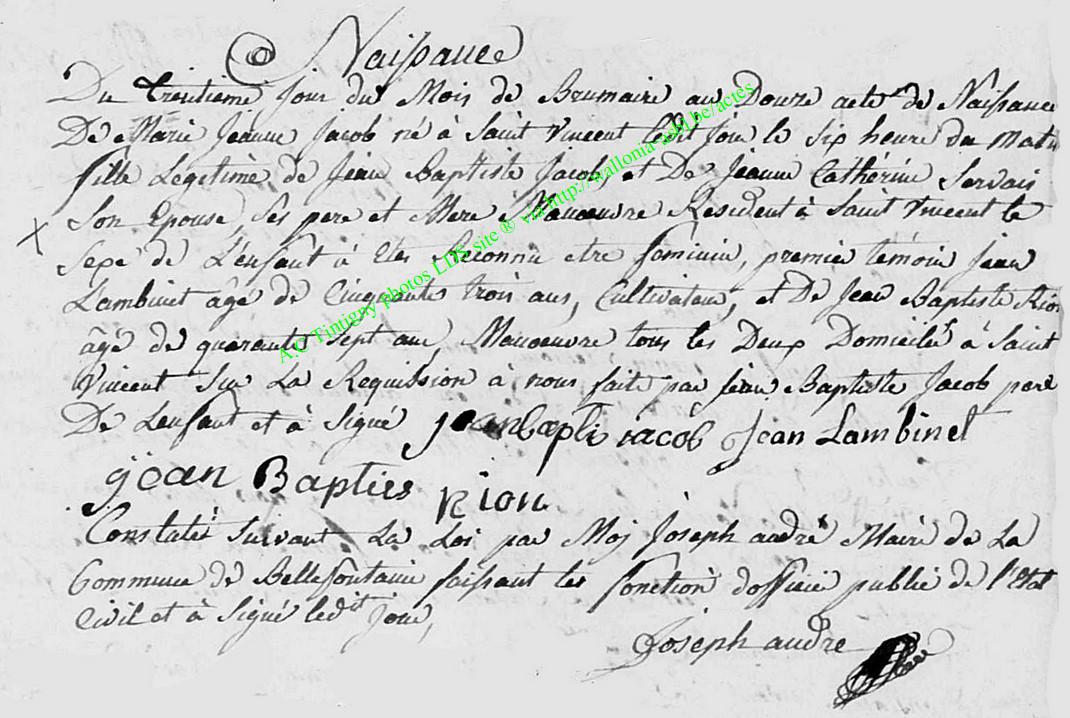 Naissance
Du trentieme jour du Mois de Brumaire an Douze acte de Naissance
De Marie Jeanne Jacob né à Saint Vincent ledit jour le six heure du matin
fille Légitime de Jean Baptiste Jacob, et De Jeanne Cathérine Servais
Son Epouse, ses pere et Mere Manoeuvre Resident à Saint Vincent le
Sexe de L'enfant à Etes Reconnu etre feminin, premier temoin Jean
Lambinet âgé de Cinquante trois ans, Cultivateur, et De Jean Baptiste Rion
âgé de quarante sept ans, Manoeuvre tous les Deux Domiciliés à Saint
Vincent Sur La Requission à nous faite par Jean Baptiste Jacob pere
De L'enfant et à Signé jeanbapti iacob Jean Lambinet
jean Bapties Rion
Constaté Suivant La Loi par Moj Joseph andré Maire de La
Commune de Bellefontaine faissant les fonction dofficie public de l'Etat
Civil et à Signé ledit jour,
Joseph andre
A.C Tintigny photos LDS, site ® via http://wallonia-asbl.be/actes